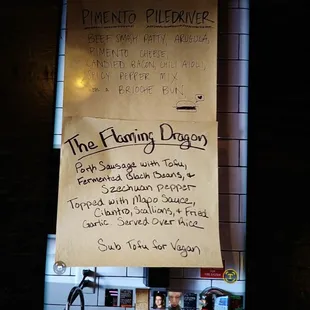 PIMENTO PILEDRIVER
BEEF SMASH PATTY, ARUGULA,
PIMENTO CHEESE,
CANDIED BACON, CHILI AIOLI,
PEPPER MIX
ON A BRIOCHE BUN
The Flaming Dragon
Pork Sausage with Tofu,
Fermented Black Beans, &
Szechuan pepper
Topped with Mapo Sauce,
Cilantro, Scallions, & Fried
Garlic. Served Over Rice
Sub Tofu for Vegan